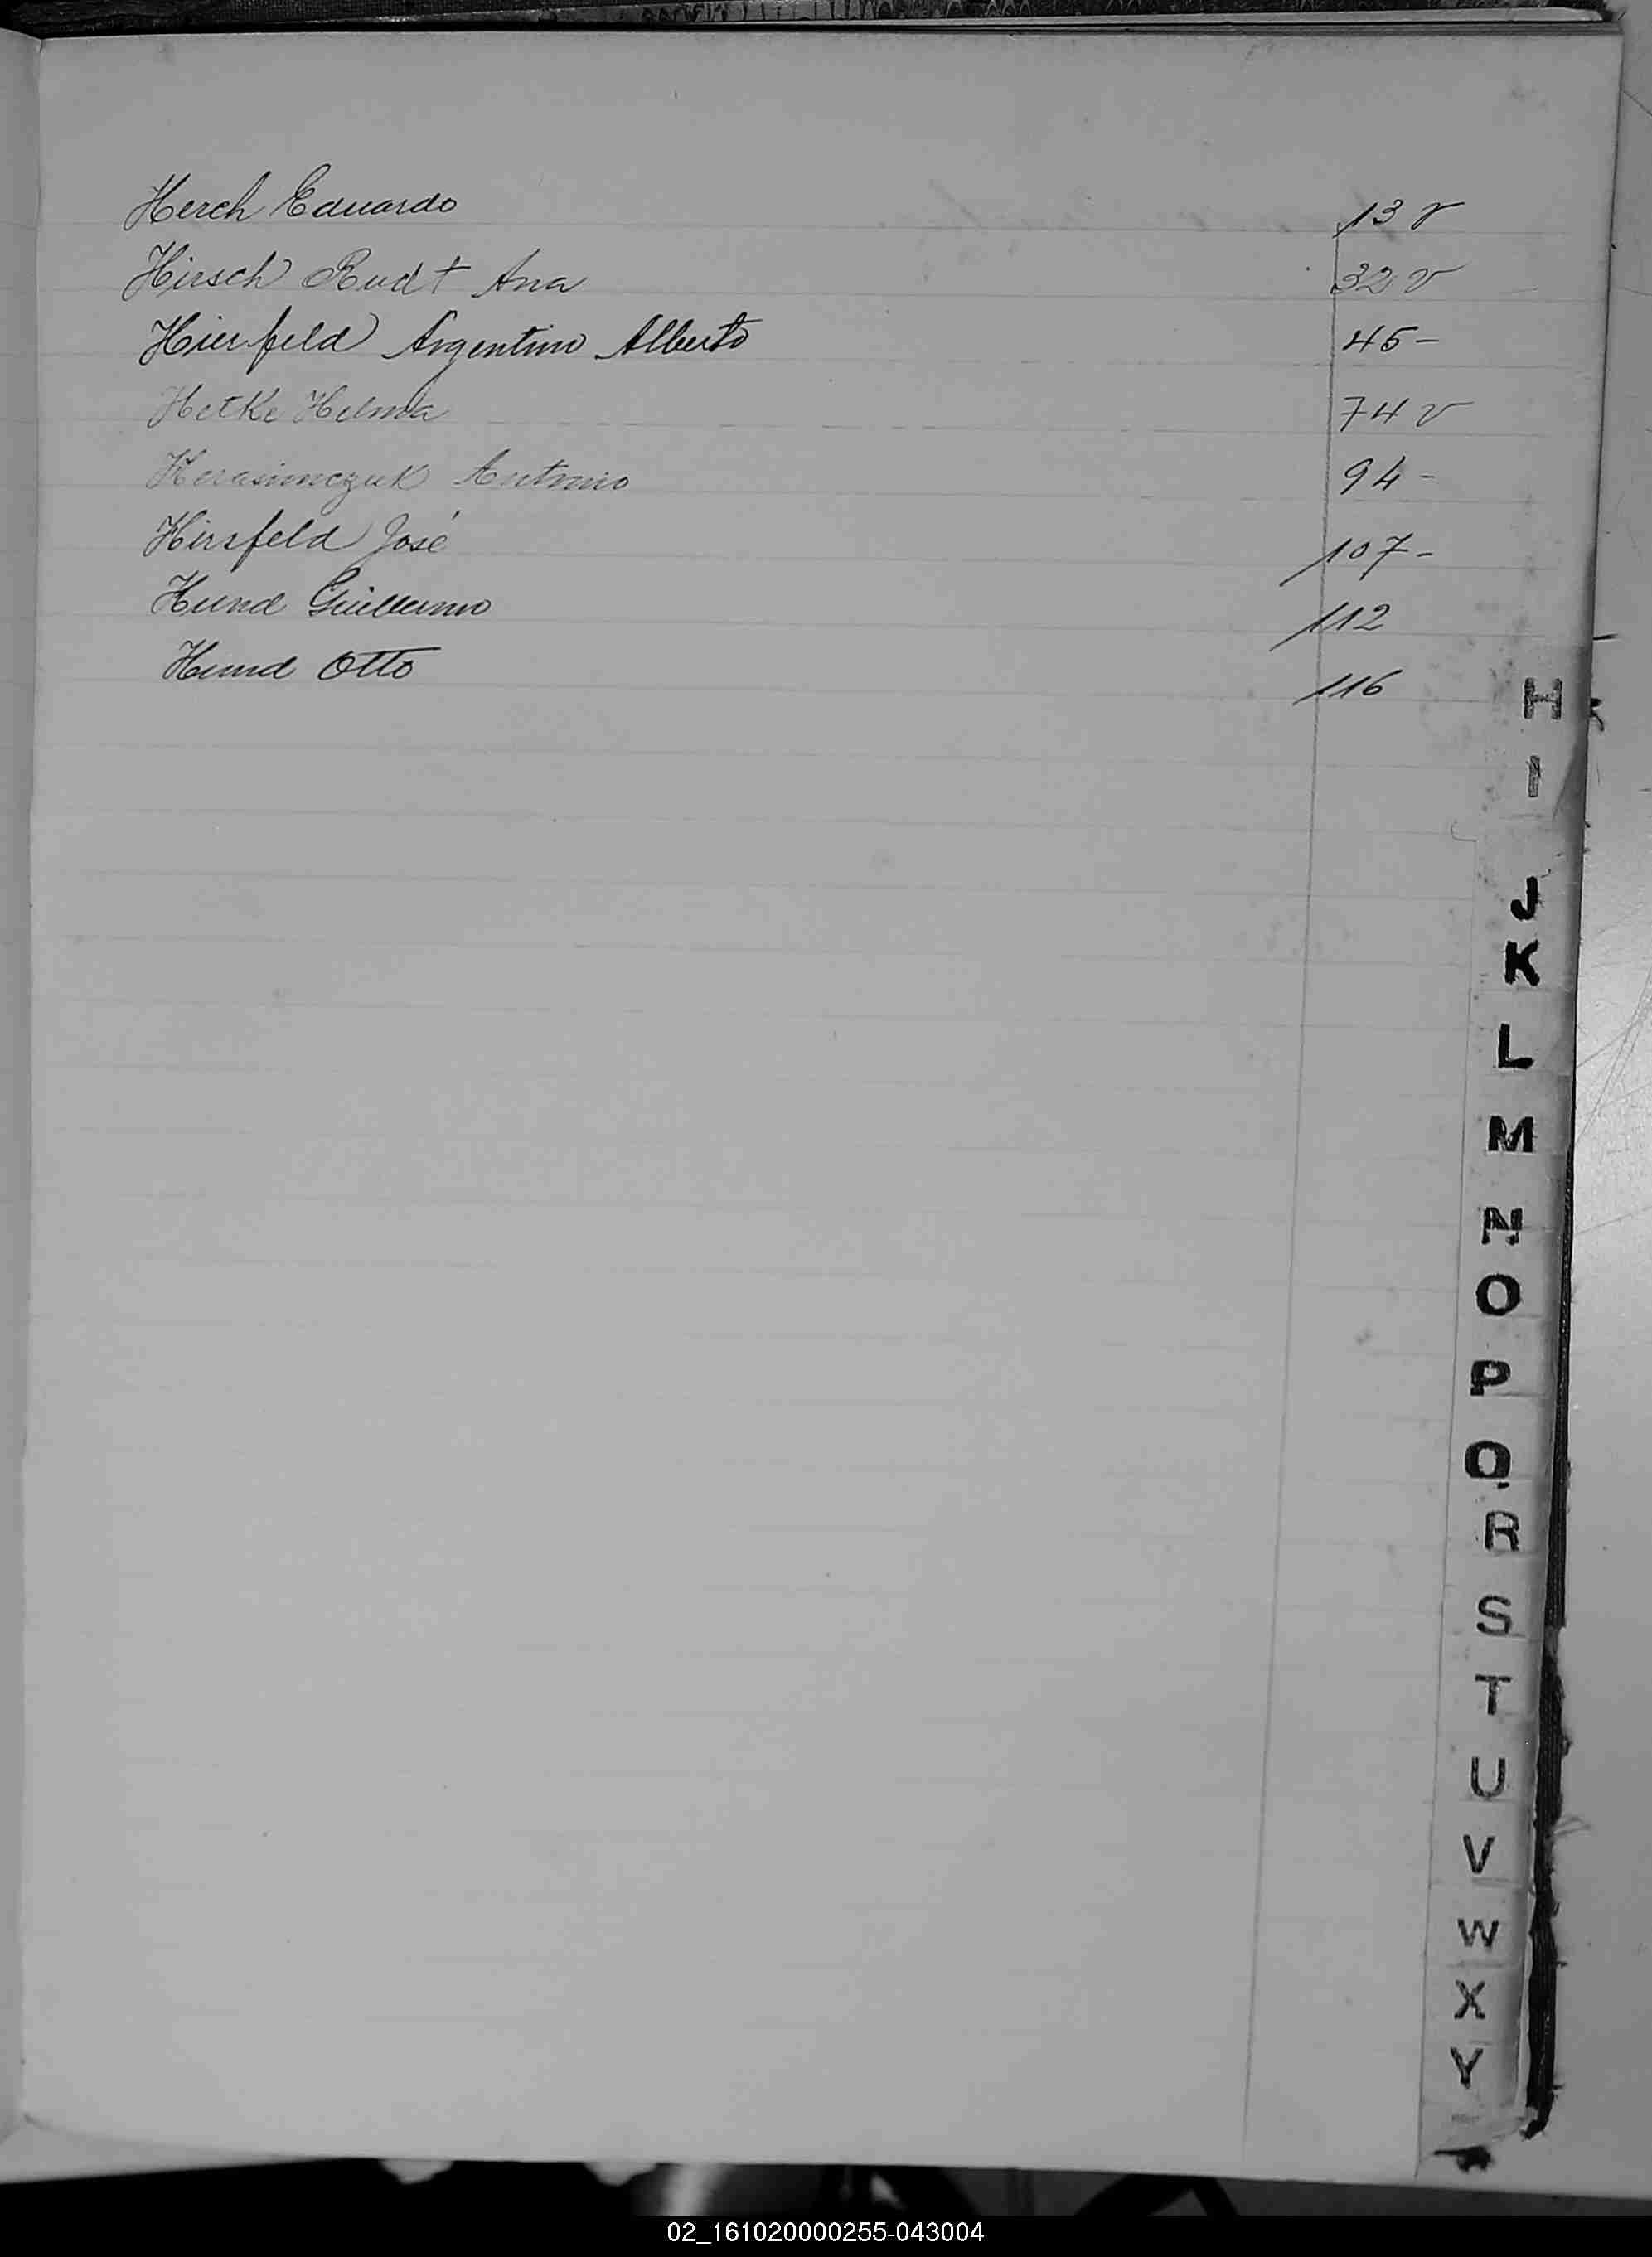 Herch Eduardo 13 v
Hirsch Rudt Ana 32 v
Hirsfeld Argentino Alberto 45 -
Hetke Helma 74 v
Herasimczuk Antonio 94 -
Hirsfeld José 107 -
Hund Guillermo 112
Hund Otto 116
H
I
J
K
L
M
N
O
P
Q
R
S
T
U
V
W
X
Y
02_161020000255-043004